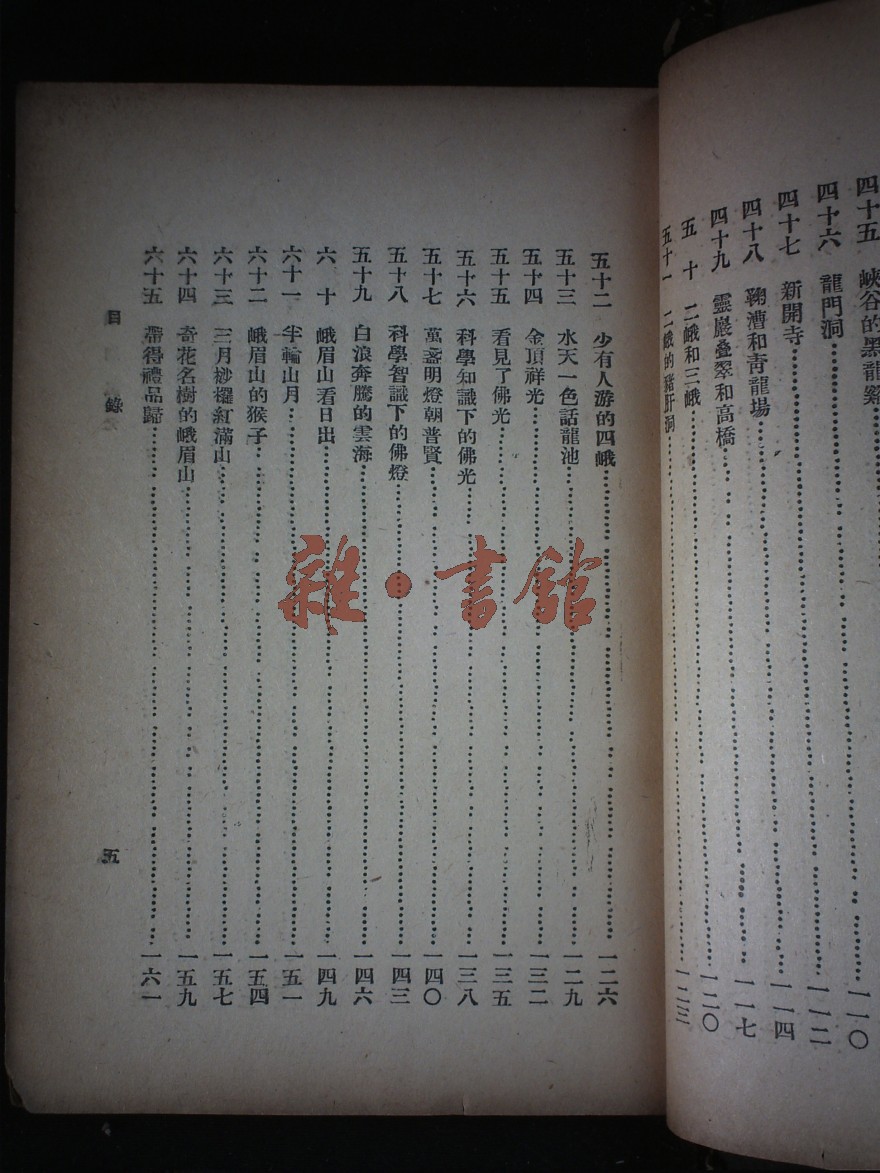 四十五　峽谷的黑龍……一一〇
四十六　龍門洞……一一二
四十七　新開寺……一一四
四十八　鞠漕和靑龍場……一一七
四十九　靈巖叠翠和高橋……一二〇
五十　二峨和三峨
五十一　二峨的豬肝洞……一二三
五十二　少有人游的四峨……一二六
五十三　水天一色話龍池……一二九
五十四　金頂祥光……一三二
五十五　看見了佛光……一三五
五十六　科學知識下的佛光……一三八
五十七　萬盞明燈朝普賢……一四〇
五十八　科學智識下的佛燈……一四三
五十九　白浪奔騰的雲海……一四六
六十　峨眉山看日出……一四九
六十一　半輪山月……一五一
六十二　峨眉山的猴子……一五四
六十三　三月桫欏紅滿山……一五七
六十四　奇花名樹的峨眉山……一五九
六十五　帶得禮品歸……一六一
目錄
五
雜·書館